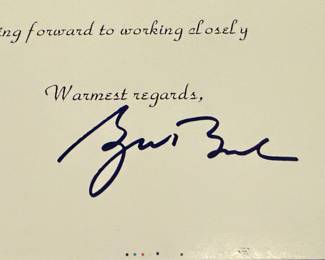 ing forward to working closely
Warmest regards,